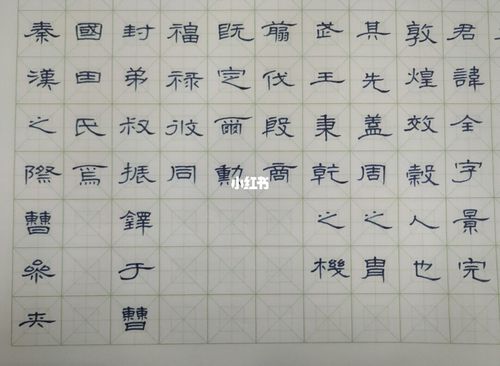 君諱全字景完
敦煌效穀人也
其先蓋周之胄
武王秉乾之機
翦伐殷商
既定爾勳
福祿攸同
封弟叔振鐸于曹
國因氏焉
秦漢之際曹參夾
小红书